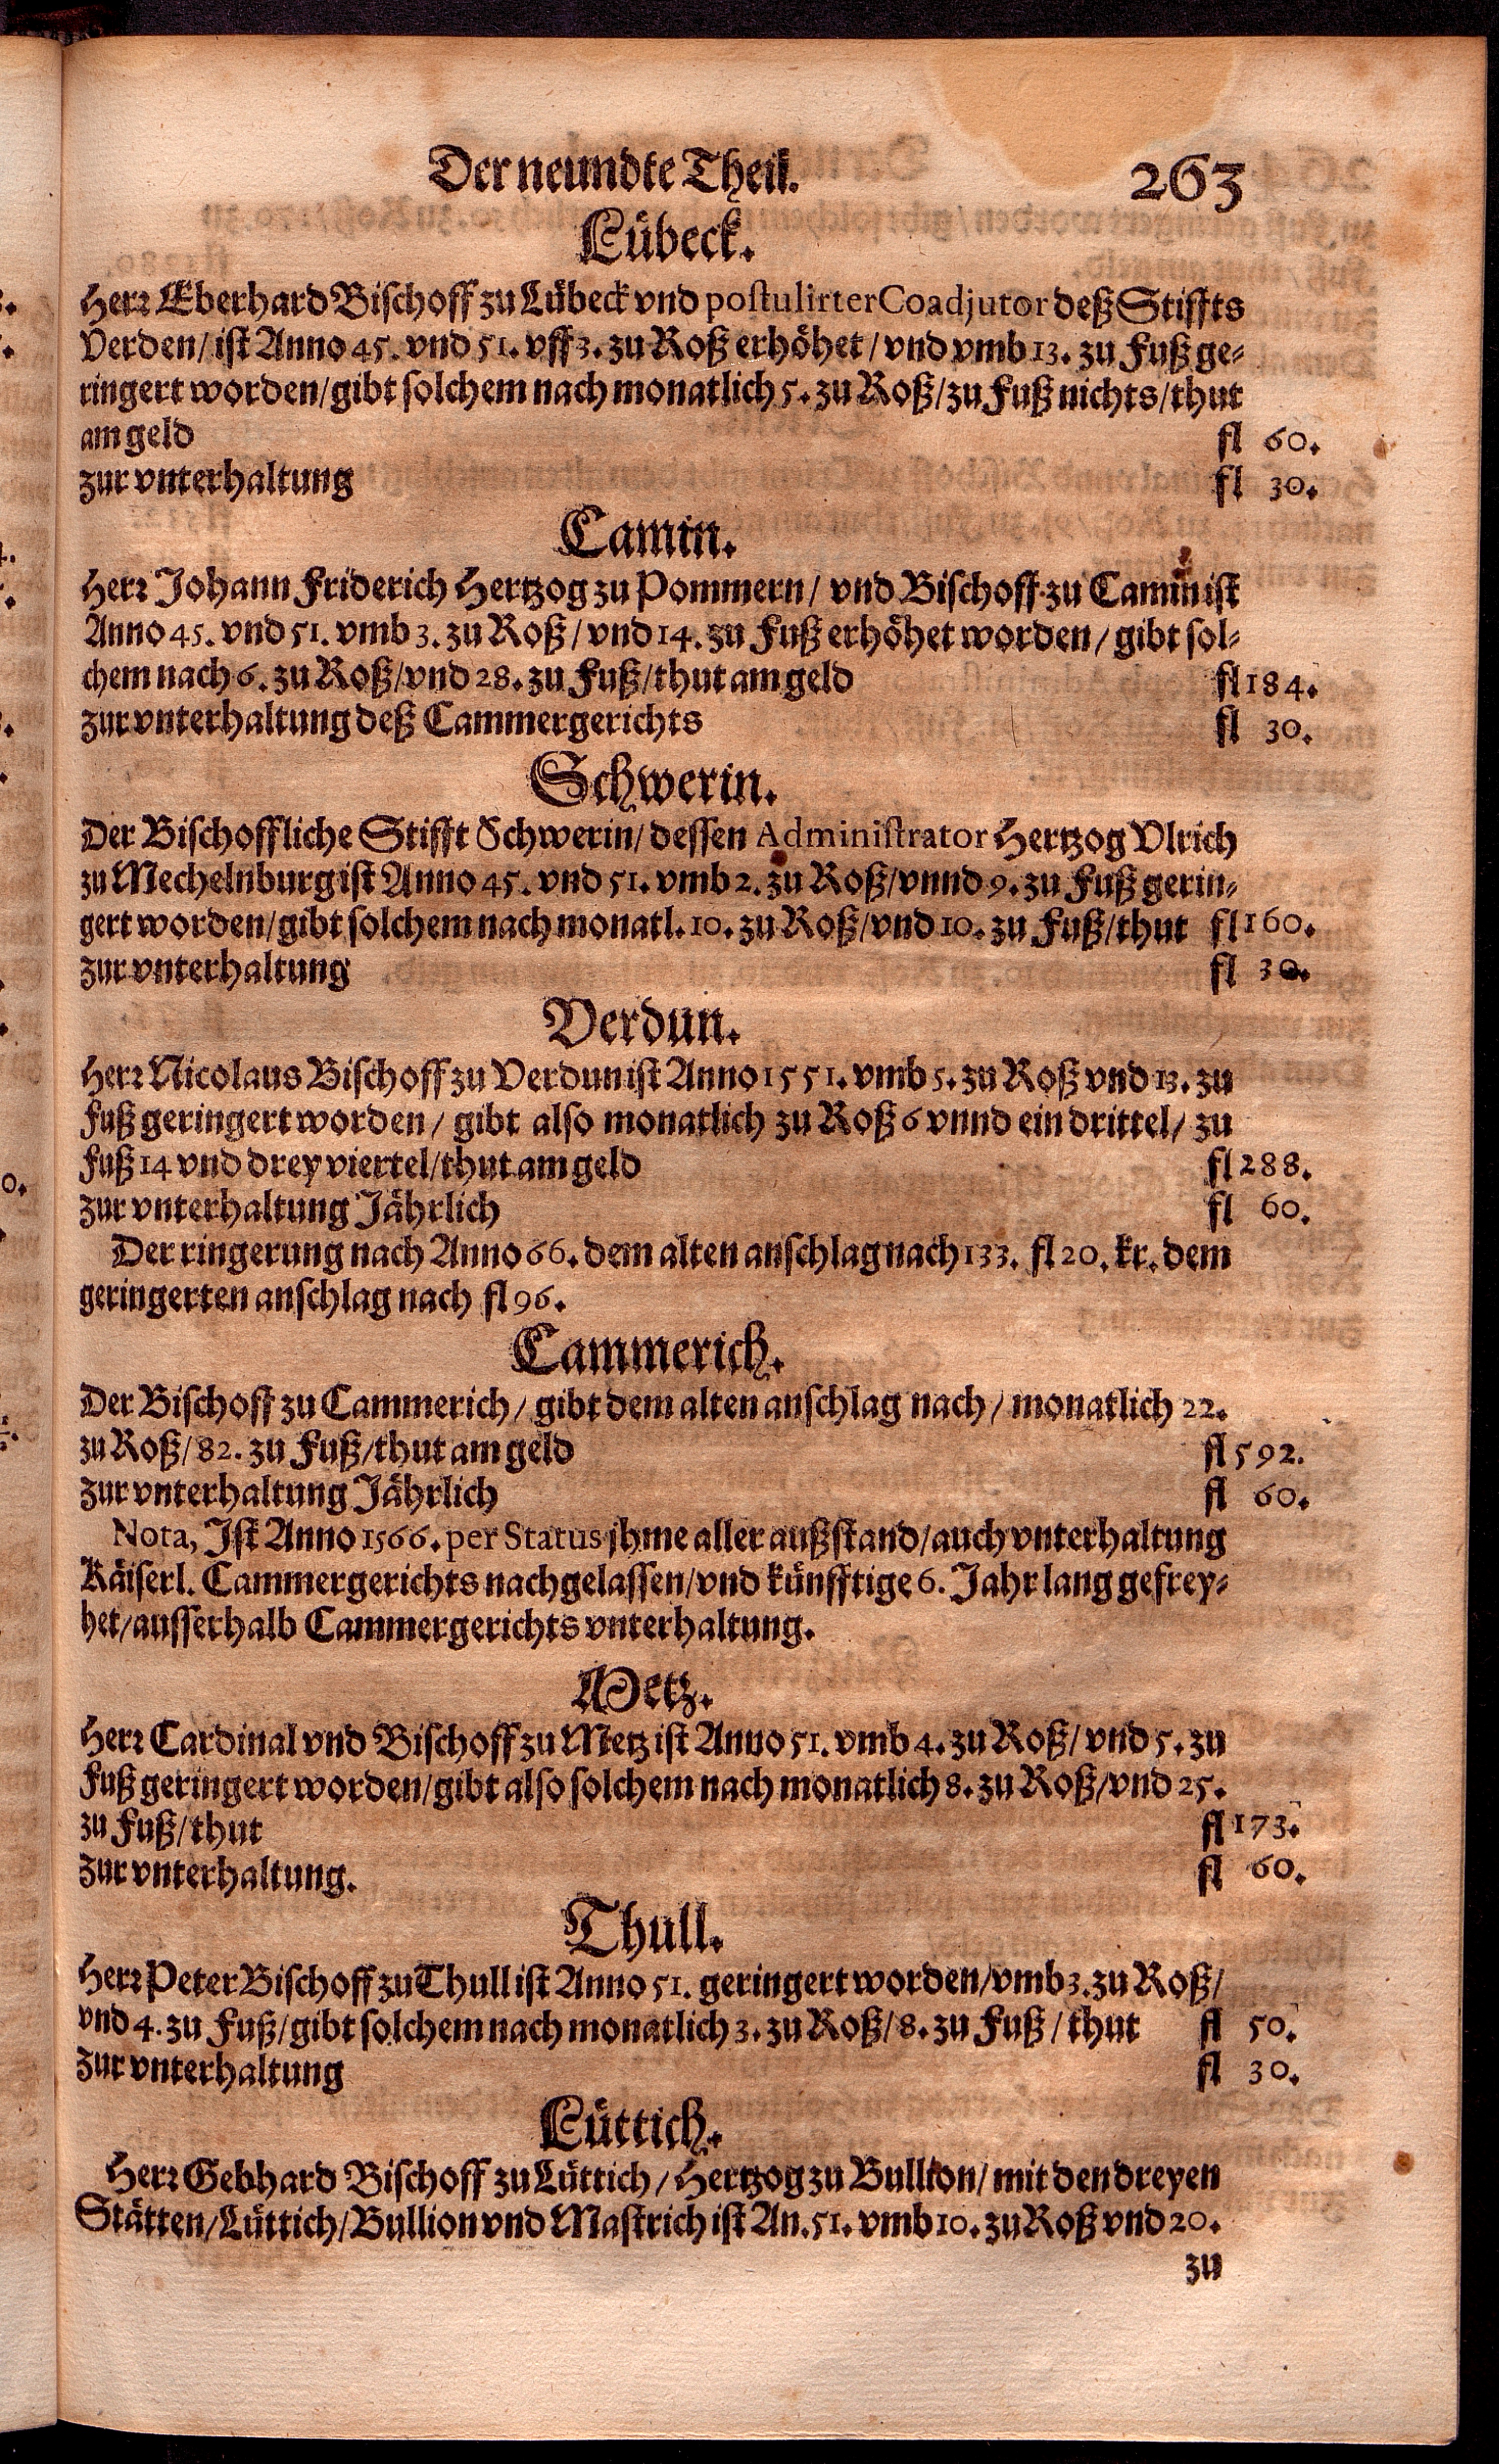 Der neundte Theil. 263
Lübeck.
Herr Eberhard Bischoff zu Lübeck vnd postulirter Coadjutor deß Stiffts
Verden/ ist Anno 45. vnd 51. vff 3. zu Roß erhöhet/ vnd vmb 13. zu Fuß ge-
ringert worden/ gibt solchem nach monatlich 5. zu Roß/ zu Fuß nichts/ thut
am geld fl 60.
zur vnterhaltung fl 30.
Camin.
Herr Johann Friderich Hertzog zu Pommern/ vnd Bischoff zu Camin ist
Anno 45. vnd 51. vmb 3. zu Roß/ vnd 14. zu Fuß erhöhet worden/ gibt sol-
chem nach 6. zu Roß/ vnd 28. zu Fuß/ thut am geld fl 184.
zur vnterhaltung deß Cammergerichts fl 30.
Schwerin.
Der Bischoffliche Stifft Schwerin/ dessen Administrator Hertzog Vlrich
zu Mechelnburg ist Anno 45. vnd 51. vmb 2. zu Roß/ vnnd 9. zu Fuß gerin-
gert worden/ gibt solchem nach monatl. 10. zu Roß/ vnd 10. zu Fuß/ thut fl 160.
zur vnterhaltung fl 30.
Verdun.
Herr Nicolaus Bischoff zu Verdun ist Anno 1551. vmb 5. zu Roß vnd 13. zu
Fuß geringert worden/ gibt also monatlich zu Roß 6 vnnd ein drittel/ zu
Fuß 14 vnd drey viertel/ thut am geld fl 288.
zur vnterhaltung Jährlich fl 60.
Der ringerung nach Anno 66. dem alten anschlag nach 133. fl 20. kr. dem
geringerten anschlag nach fl 96.
Cammerich.
Der Bischoff zu Cammerich/ gibt dem alten anschlag nach/ monatlich 22.
zu Roß/ 82. zu Fuß/ thut am geld fl 592.
zur vnterhaltung Jährlich fl 60.
Nota, Ist Anno 1566. per Status jhme aller außstand/ auch vnterhaltung
Käiserl. Cammergerichts nachgelassen/ vnd künfftige 6. Jahr lang gefrey-
het/ ausserhalb Cammergerichts vnterhaltung.
Metz.
Herr Cardinal vnd Bischoff zu Metz ist Anno 51. vmb 4. zu Roß/ vnd 5. zu
Fuß geringert worden/ gibt also solchem nach monatlich 8. zu Roß/ vnd 25.
zu Fuß/ thut fl 173.
zur vnterhaltung. fl 60.
Thull.
Herr Peter Bischoff zu Thull ist Anno 51. geringert worden/ vmb 3. zu Roß/
vnd 4. zu Fuß/ gibt solchem nach monatlich 3. zu Roß/ 8. zu Fuß/ thut fl 50.
zur vnterhaltung fl 30.
Lüttich.
Herr Gebhard Bischoff zu Lüttich/ Hertzog zu Bullion/ mit den dreyen
Stätten/ Lüttich/ Bullion vnd Mastrich ist An. 51. vmb 10. zu Roß vnd 20.
zu